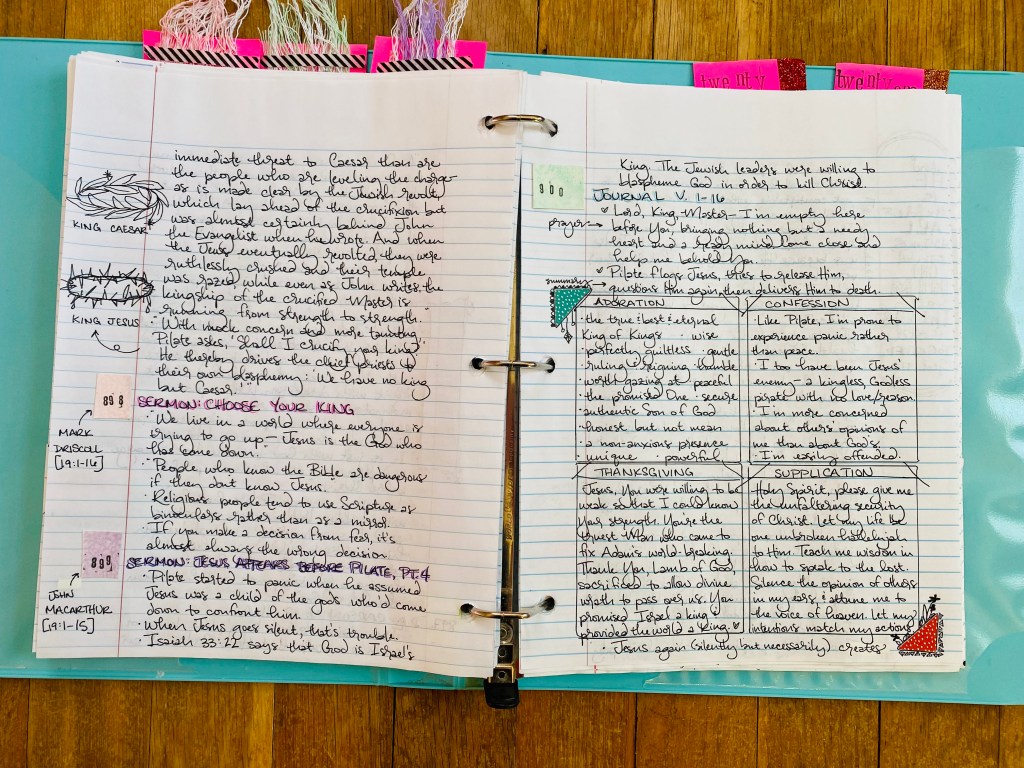 twenty
immediate threat to Caesar than are
the people who are leveling the charge
as is made clear by the Jewish revolt,
which lay ahead of the crucifixion but
was almost certainly behind John
the Evangelist when he wrote. And when
the Jews eventually revolted they were
ruthlessly crushed and their temple
was razed, while even as John writes, the
kingship of the crucified Master is
running from strength to strength."
· With mock concern and more taunting,
Pilate asks, 'Shall I crucify your king?'
He thereby drives the chief priests to
their own blasphemy: 'We have no king
but Caesar!'"
KING CAESAR
KING JESUS
SERMON: CHOOSE YOUR KING
MARK
DRISCOLL
[19:1-16]
· We live in a world where everyone is
trying to go up — Jesus is the God who
has come down.
· People who know the Bible are dangerous
if they don't know Jesus.
· Religious people tend to use Scripture as
binoculars rather than as a mirror.
· If you make a decision from fear, it's
almost always the wrong decision.
SERMON: JESUS APPEARS BEFORE PILATE, PT. 4
JOHN
MACARTHUR
[19:1-15]
· Pilate started to panic when he assumed
Jesus was a child of the gods who'd come
down to confront him.
· When Jesus goes silent, that's trouble.
· Isaiah 33:22 says that God is Israel's
King. The Jewish leaders were willing to
blaspheme God in order to kill Christ.
JOURNAL V. 1-16
prayer
♥ Lord, King, Master — I'm empty here
before You, bringing nothing but a needy
heart and a ready mind. Come close and
help me behold You.
summary
♥ Pilate flogs Jesus, tries to release Him,
questions Him again, then delivers Him to death.
ADORATION
· the true & best & eternal
King of Kings · wise
· perfectly guiltless · gentle
· ruling & reigning · humble
· worth gazing at · peaceful
· the promised One · secure
· authentic Son of God
· honest but not mean
· a non-anxious presence
· unique · powerful
CONFESSION
· Like Pilate, I'm prone to
experience panic rather
than peace.
· I too have been Jesus'
enemy — a kingless, Godless
pirate with no love/reason.
· I'm more concerned
about others' opinions of
me than about God's.
· I'm easily offended.
THANKSGIVING
Jesus, You were willing to be
weak so that I could know
Your strength. You're the
truest Man who came to
fix Adam's world-breaking.
Thank You, Lamb of God,
sacrificed to allow divine
wrath to pass over us. You
promised Israel a king &
provided the world a King. ♥
SUPPLICATION
Holy Spirit, please give me
the unfaltering security
of Christ. Let my life be
one unbroken hallelujah
to Him. Teach me wisdom in
how to speak to the lost.
Silence the opinion of others
in my ears, & attune me to
the voice of heaven. Let my
intentions match my actions.
· Jesus again (silently but necessarily) creates